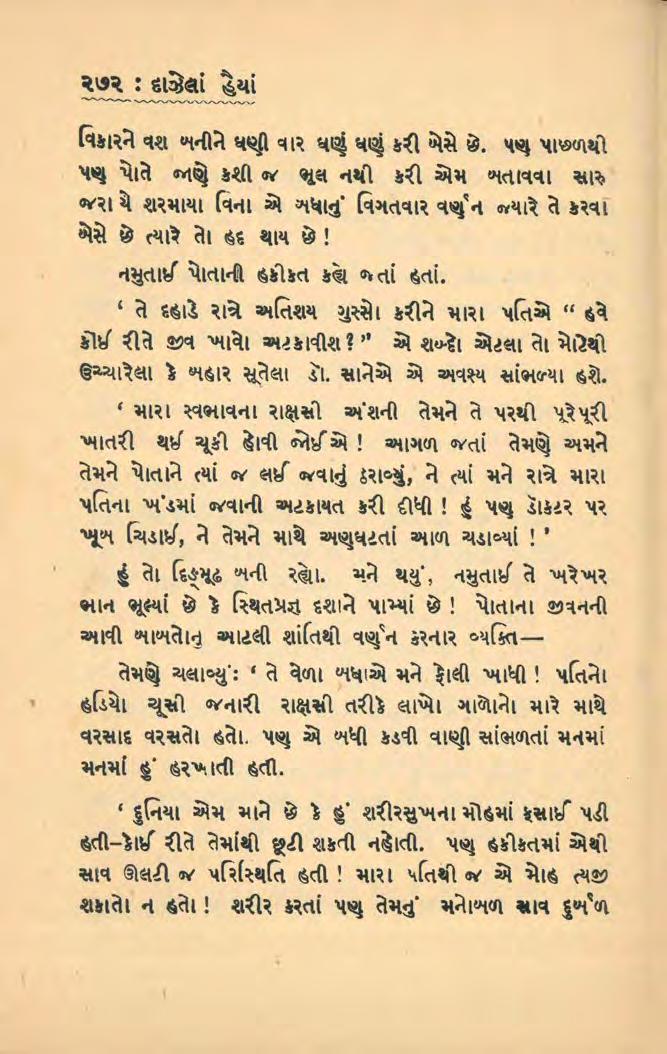 ૨૭૨ : દાઝેલાં હૈયાં
વિકારને વશ બનીને ઘણી વાર ઘણું ઘણું કરી બેસે છે. પણ પાછળથી
પણ પોતે જાણે કશી જ ભૂલ નથી કરી એમ બતાવવા સારુ
જરા યે શરમાયા વિના એ બધાનું વિગતવાર વર્ણન જ્યારે તે કરવા
બેસે છે ત્યારે તો હદ થાય છે !
નમુતાઈ પોતાની હકીકત કહ્યે જતાં હતાં.
‘ તે દહાડે રાત્રે અતિશય ગુસ્સો કરીને મારા પતિએ “ હવે
કોઈ રીતે જીવ ખાવો અટકાવીશ ? ” એ શબ્દો એટલા તો મોટેથી
ઉચ્ચારેલા કે બહાર સૂતેલા ડૉ. સાનેએ એ અવશ્ય સાંભળ્યા હશે.
‘ મારા સ્વભાવના રાક્ષસી અંશની તેમને તે પરથી પૂરેપૂરી
ખાતરી થઈ ચૂકી હોવી જોઈએ ! આગળ જતાં તેમણે અમને
તેમને પોતાને ત્યાં જ લઈ જવાનું ઠરાવ્યું, ને ત્યાં મને રાત્રે મારા
પતિના ખંડમાં જવાની અટકાયત કરી દીધી ! હું પણ ડૉકટર પર
ખૂબ ચિડાઈ, ને તેમને માથે અણઘટતાં આળ ચડાવ્યાં ! ’
હું તો દિઙ્મૂઢ બની રહ્યો. મને થયું, નમુતાઈ તે ખરેખર
ભાન ભૂલ્યાં છે કે સ્થિતપ્રજ્ઞ દશાને પામ્યાં છે ! પોતાના જીવનની
આવી બાબતોનુ આટલી શાંતિથી વર્ણન કરનાર વ્યક્તિ—
તેમણે ચલાવ્યું: ‘ તે વેળા બધાએ મને ફોલી ખાધી ! પતિનો
હડિયો ચૂસી જનારી રાક્ષસી તરીકે લાખો ગાળોનો મારે માથે
વરસાદ વરસતો હતો. પણ એ બધી કડવી વાણી સાંભળતાં મનમાં
મનમાં હું હરખાતી હતી.
‘ દુનિયા એમ માને છે કે હું શરીરસુખના મોહમાં ફસાઈ પડી
હતી–કોઈ રીતે તેમાંથી છૂટી શકતી નહોતી. પણ હકીકતમાં એથી
સાવ ઊલટી જ પરિસ્થિતિ હતી ! મારા પતિથી જ એ મોહ ત્યજી
શકાતો ન હતો ! શરીર કરતાં પણ તેમનું મનોબળ સાવ દુર્બળ